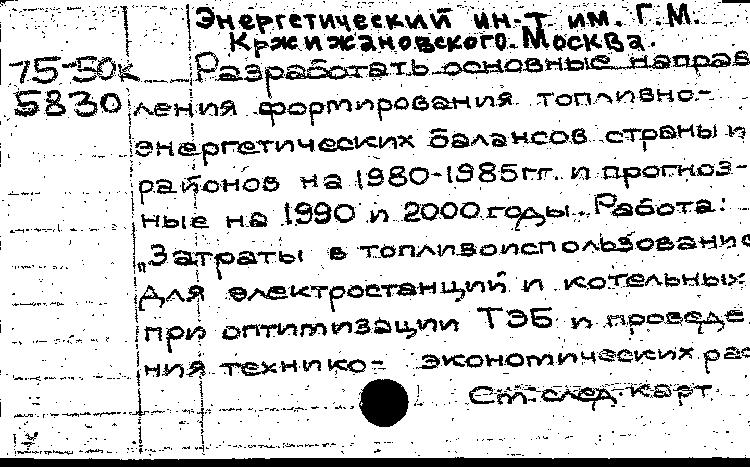 Энергетический ин-т им. Г.М.
Кржижановского. Москва.
75-50к Разработать основные направ
5830 ления формирования топливно-
энергетических балансов страны и
районов на 1980-1985гг. и прогноз-
ные на 1990 и 2000 годы. Работа:
„Затраты в топливоиспользование
для электростанций и котельных
при оптимизации ТЭБ и проведе
ния технико- экономических рас
См. след. карт